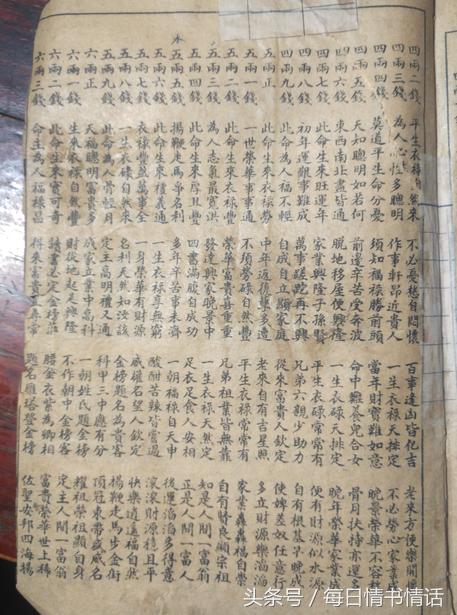 四兩二錢 平生衣祿自然來 不必憂愁自開懷 百事逢凶皆化吉 老來方便樂開懷
四兩三錢 為人心性多聰明 作事軒昂近貴人 一生衣祿天排定 不必勞心家業成
四兩四錢 莫道平生命分憂 須知福祿勝前頭 當年財寶難如意 晚景榮華不
四兩 天知聰明如若何 前邊辛苦受奔波 命中難養兒合女 骨肉扶持亦運多
四兩六錢 東西南北盡皆通 脫地移屋便興隆 一生衣碌天排定 晚年榮華家業成
四兩七錢 此命生來旺運年 家業興隆子孫賢 平生衣碌常常有 便有財源似水源
四兩八錢 初年運限事難成 萬事蹉跎再不興 兄弟六親少助力 自有根基早晚成
四兩九錢 此命為人福不輕 自成自立顯家庭 從來富貴人欽定 使婢差奴任意行
五兩正 此命生來衣祿勞 中年返復多遭 老來自有吉星照 多立財源樂滔滔
五兩一錢 一世榮華事事通 不須勞碌自然豐 平生衣碌常常有 家業轟轟福
五兩二錢 此命生來衣祿豐 榮華富貴喜重重 兄弟祖業皆無靠 自有賢良顯宗祖
五兩三錢 為人志氣最寬洪 發達興家晚景中 一生衣碌天然定 是人間一富翁
五兩四錢 此命生來厚且豐 四書滿腹自成功 足衣足食人安相 正是人間一富
水
五兩五錢 揚鞭走馬爭名利 多年辛苦事未濟 一朝福祿自天申 後運滔滔多得意
五兩六錢 此命生來禮義通 一生衣祿享無窮 酸甜苦辣皆當過 滾滾財源穩且平
五兩七錢 衣祿豐盈萬事全 一身榮華有財源 威權名望人欽定 快樂逍遙福自然
五兩八錢 一生衣祿自然來 名利天然如汝該 金榜題名為貴客 揚鞭走馬步金街
五兩九錢 此命為人骨輕 定主高明禮又通 科甲三中應有分 頂冠束帶威威名
六兩正 天福聰明富貴多 成家立業中高科 一朝姓氏題金榜 祖榮祖顯自身
六兩一錢 生來衣祿自然豐 財從地起足興隆 不作朝中金榜客 定主人間一富翁
六兩二錢 此命生來實可奇 讀書必定金榜 腰金衣紫為卿相 富貴榮華世上稀
六兩三錢 命主為人福祿昌 得來富貴尋常 題名雁塔金榜 佐聖安邦四海揚
头条号 / 每日情书情话